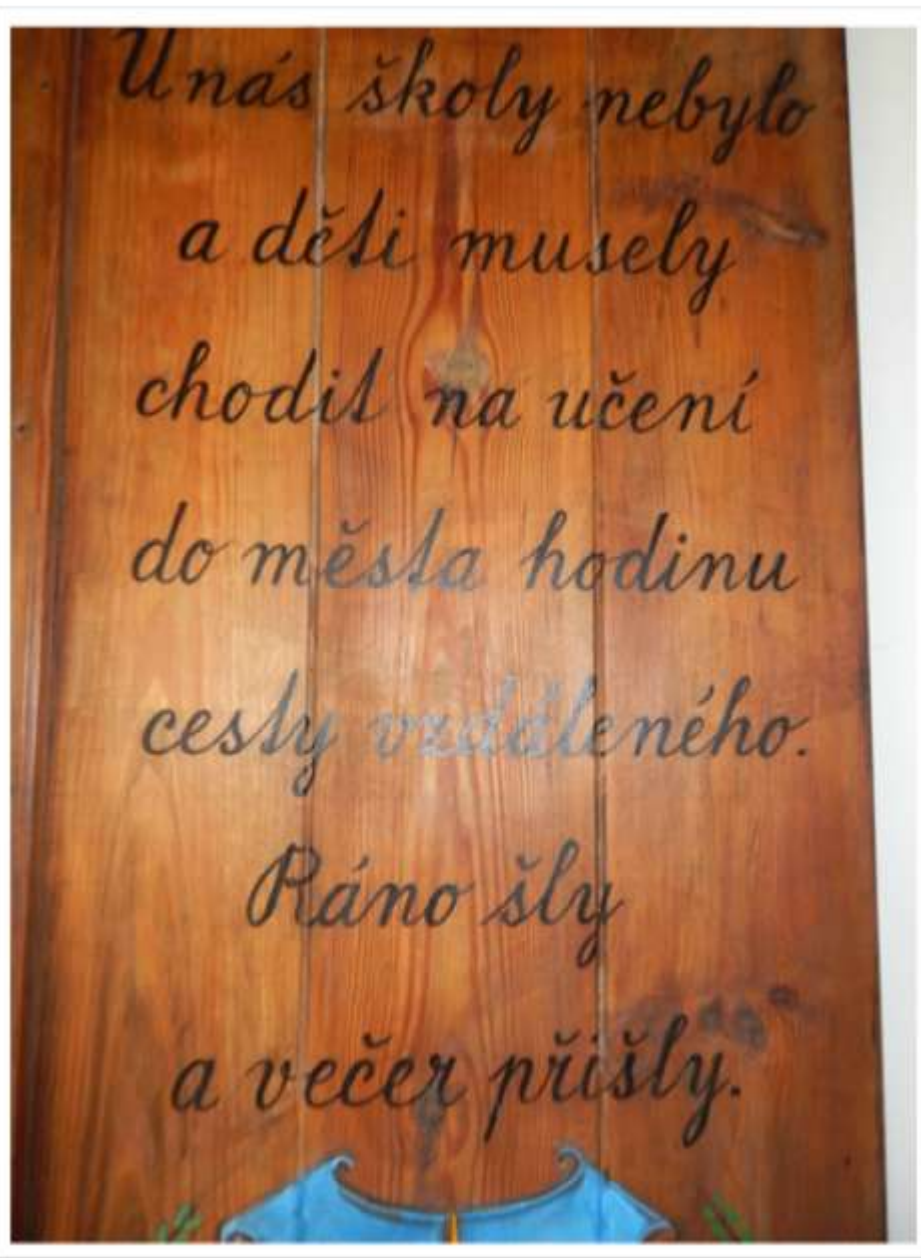 U nás školy nebylo
a děti musely
chodit na učení
do města hodinu
cesty vzdáleného.
Ráno šly
a večer přišly.